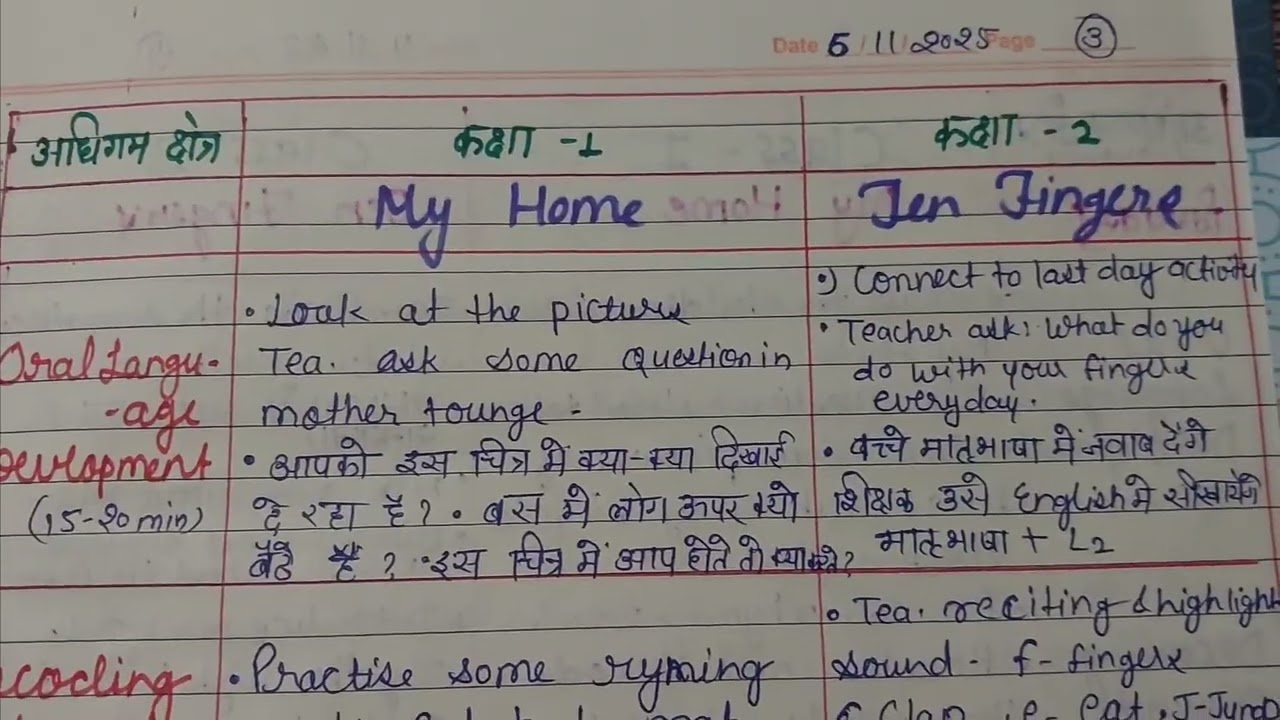 Date 5/11/2025 Page 3
अधिगम क्षेत्र कक्षा -1 कक्षा - 2
My Home Ten Fingers
•) Connect to last day activity
• Look at the picture
• Teacher ask: What do you
Oral Langu- Tea. ask some question in
do with your fingers
-age mother tounge -
everyday.
Development • आपको इस चित्र में क्या-क्या दिखाई • बच्चे मातृभाषा में जवाब देंगे
(15-20 min) दे रहा है? • बस में लोग ऊपर क्यो शिक्षक उसे English मे सीखायेंगे
बैठे हैं? • इस चित्र में आप होते तो क्या करते? मातृभाषा + L2
• Tea. reciting & highlight
coding • Practise some ryming sound - f - fingers
Clap eat